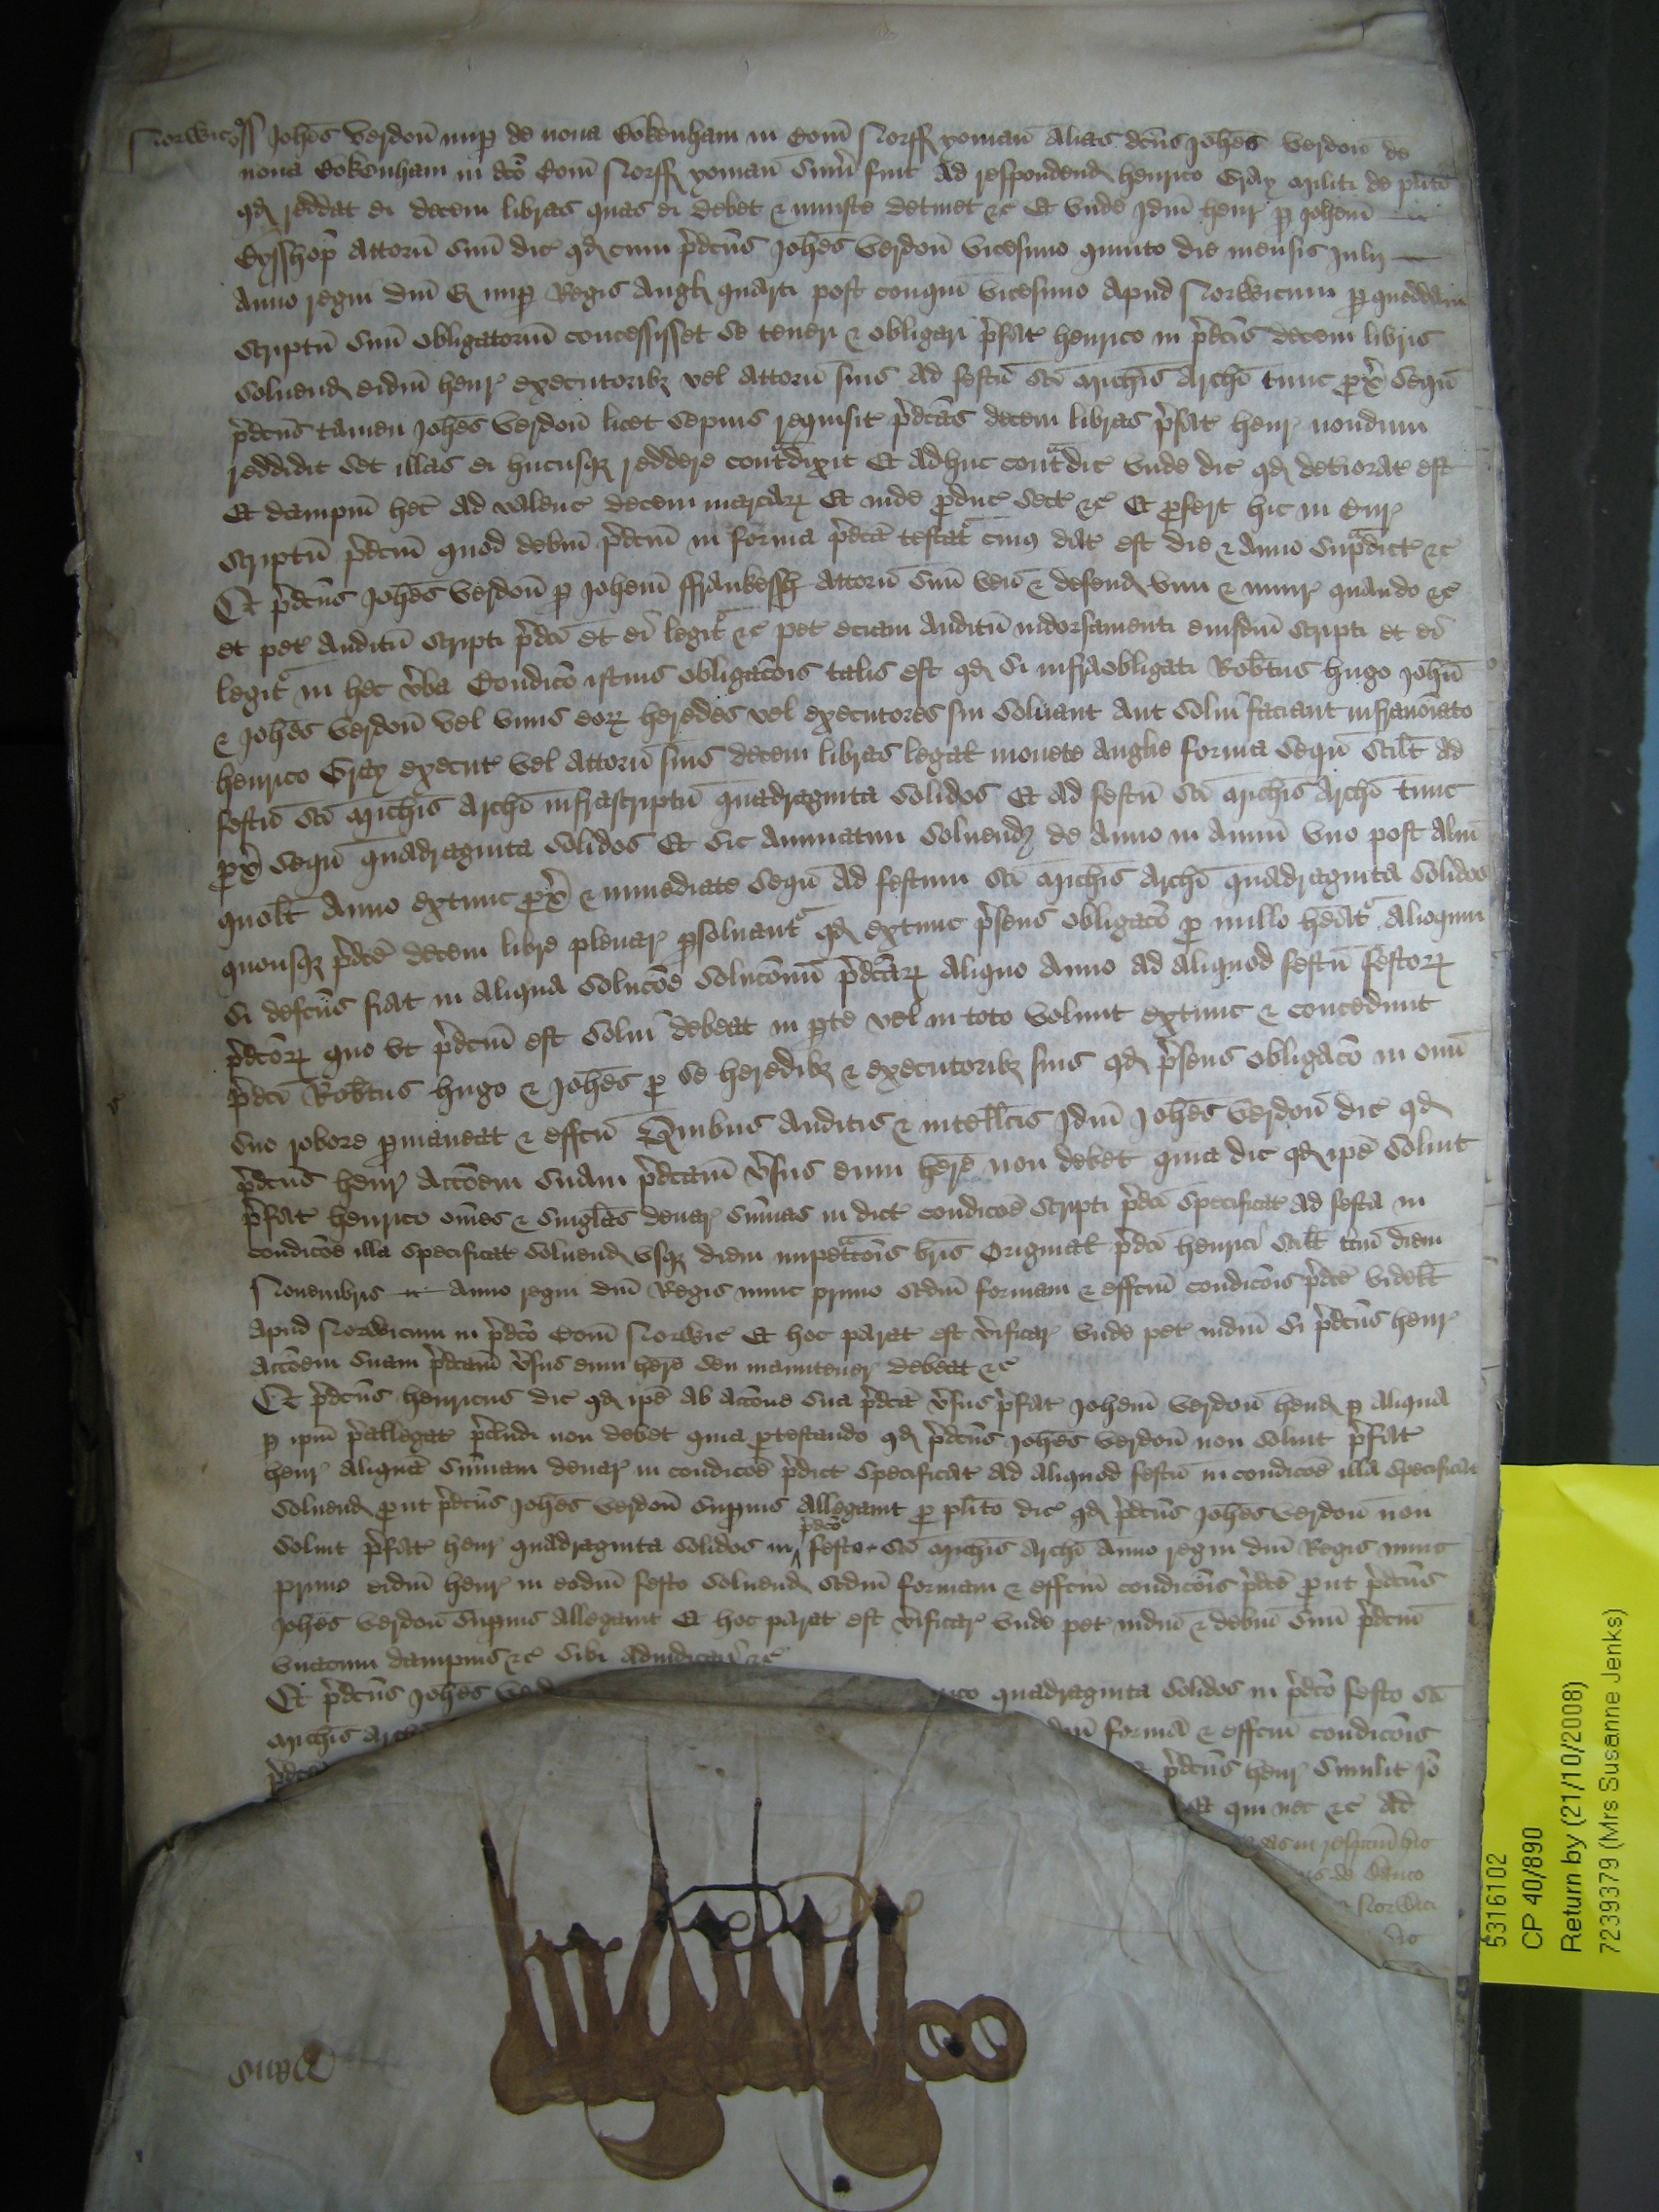 Norwic̄ ss Joħes Verdon̄ nup̱ de noua Bokenham in Com̄ Norff yoman̄ alias dc̄us Joħes Verdon̄ de
noua Bokenham in dc̄o Com̄ Norff yoman̄ sum̄ fuit ad respondend̄ henrico Gray militi de plīto
qd̄ reddat ei decem libras quas ei debet & iniuste detinet &c̄ Et vnde idm̄ henr̄ p̱ Joħem
Bysshop̄ attorn̄ suū dic̄ qd̄ cum p̄dc̄us Joħes Verdon̄ vicesimo quinto die mensis Julij
Anno regni dn̄i E nup̱ Regis Angł quarti post conqm̄ vicesimo apud Norwicum p̱ quoddam
scriptū suū obligatoriū concessisset se teneri & obligari p̄fat̄ henrico in p̄dc̄is decem libris
soluend̄ eidm̄ henr̄ executoribȝ vel attorn̄ suis ad festū sc̄i Micħis Arcħi tunc p̱x̄ seqū
p̄dc̄us tamen Joħes Verdon̄ licet sepius requisit̄ p̄dc̄as decem libras p̄fat̄ henr̄ nondum
reddidit set illas ei hucusqȝ reddere contᵃdixit Et adhuc contᵃdic̄ vnde dic̄ qd̄ deteriorat̄ est
Et dampnū het̄ ad valenc̄ decem marcarꝝ Et inde p̱duc̄ sect̄ &c̄ Et p̱fert hic in Cur̄
scriptū p̄dc̄m quod debm̄ p̄dc̄m in forma p̄dc̄a testatᵉ cuiꝰ dat̄ est die & anno sup̱dict̄ &c̄
Et p̄dc̄us Joħes Verdon̄ p̱ Joħem ffrankyssħ attorn̄ suū ven̄ & defend̄ vim & iniur̄ quando &c̄
et pet̄ auditū scripti p̄dc̄i et ei legitᵉ &c̄ pet̄ eciam auditū indorsamenti eiusdm̄ scripti et ei
legitᵉ in hec v̄ba Condico̅ istius obligac̄ois talis est qd̄ si infraobligati Rob̄tus hugo Joħn̄
& Joħes Verdon̄ vel vnus eorꝝ heredes vel executores sui soluant aut solui faciant infranoīato
henrico Gray execut̄ vel attorn̄ suis decem libras legał monete Anglie forma seqū scil̄t ad
festū sc̄i Micħis Arcħi infrascriptū quadraginta solidos Et ad festū sc̄i Micħis Arcħi tunc
p̱x̄ seqū quadraginta solidos Et sic annuatim soluendȝ de anno in annū vno post aliū
quol̄t anno extunc p̱x̄ & immediate seqū ad festum sc̄i Micħis Arcħi quadraginta solidos
quousqȝ p̄dc̄e decem libre plenar̄ p̱soluantᵉ qd̄ extunc p̄sens obligaco̅ p̱ nullo heatᵉ Alioquin
si defc̄us fiat in aliqua soluco̅e soluco̅nū p̄dc̄arꝝ aliquo anno ad aliquod festū festorꝝ
p̄dc̄orꝝ quo vt p̄dc̄m est solui debeat in p̱te vel in toto volunt extunc & concedunt
p̄dc̄i Rob̄tus hugo & Joħes p̱ se heredibȝ & executoribȝ suis qd̄ p̄sens obligaco̅ in om̄i
suo robore p̱maneat & effc̄u Quibus auditis & intellc̄is Idm̄ Joħes Verdon̄ dic̄ qd̄
p̄dc̄us henr̄ acc̄oem suam p̄dc̄am v̄sus eum h̄ere non debet quia dic̄ qd̄ ip̄e soluit
p̄fat̄ henrico om̄es & singl̄as denar̄ sūmas in dict̄ condico̅e scripti p̄dc̄i specificat̄ ad festa in
condico̅e illa specificat̄ soluend̄ vsqȝ diem impetᵃc̄ois br̄is Original p̄dc̄i henrici scil̄t tc̄iū diem
Nouembris Anno regni dn̄i Regis nunc primo sc̄dm̄ formam & effc̄m condico̅is p̄dc̄e videl̄t
apud Norwicum in p̄dc̄o Com̄ Norwic̄ Et hoc parat̄ est v̄ificar̄ vnde pet̄ iudm̄ si p̄dc̄us henr̄
acc̄oem suam p̄dc̄am v̄sus eum h̄ere seu manutener̄ debeat &c̄
Et p̄dc̄us henricus dic̄ qd̄ ip̄e ab acc̄one sua p̄dc̄a v̄sus p̄fat̄ Joħem Verdon̄ h̄end̄ p̱ aliqua
p̱ ip̄m p̄allegat̄ p̄cludi non debet quia p̱testando qd̄ p̄dc̄us Joħes Verdon̄ non soluit p̄fat̄
henr̄ aliquā sūmam denar̄ in condico̅e p̄dict̄ specificat̄ ad aliquod festū in condico̅e illa specificat̄
soluend̄ p̱ut p̄dc̄us Joħes Verdon̄ sup̱ius allegauit p̱ plīto dic̄ qd̄ p̄dc̄us Joħes Verdon̄ non
soluit p̄fat̄ henr̄ quadraginta solidos in p̄dc̄o festo sc̄i Micħis Arcħi Anno regni dn̄i Regis nunc
primo eidm̄ henr̄ in eodm̄ festo soluend̄ sc̄dm̄ formam & effc̄m condico̅is p̄dc̄e p̱ut p̄dc̄us
Joħes Verdon̄ sup̱ius allegauit Et hoc parat̄ est v̄ificar̄ vnde pet̄ iudm̄ & debm̄ suū p̄dc̄m
vnacum dampnis &c̄ sibi adiudicari &c̄
Et p̄dc̄us Joħes quadraginta solidos in p̄dc̄o festo sc̄i
Micħis formā & effc̄m condico̅is
p̄dc̄us henr̄ similit̄
Et qui nec &c̄ Ad
in respc̄m
de banco
Norwici
5316102
CP 40/890
Return by (21/10/2008)
7239379 (Mrs Susanne Jenks)